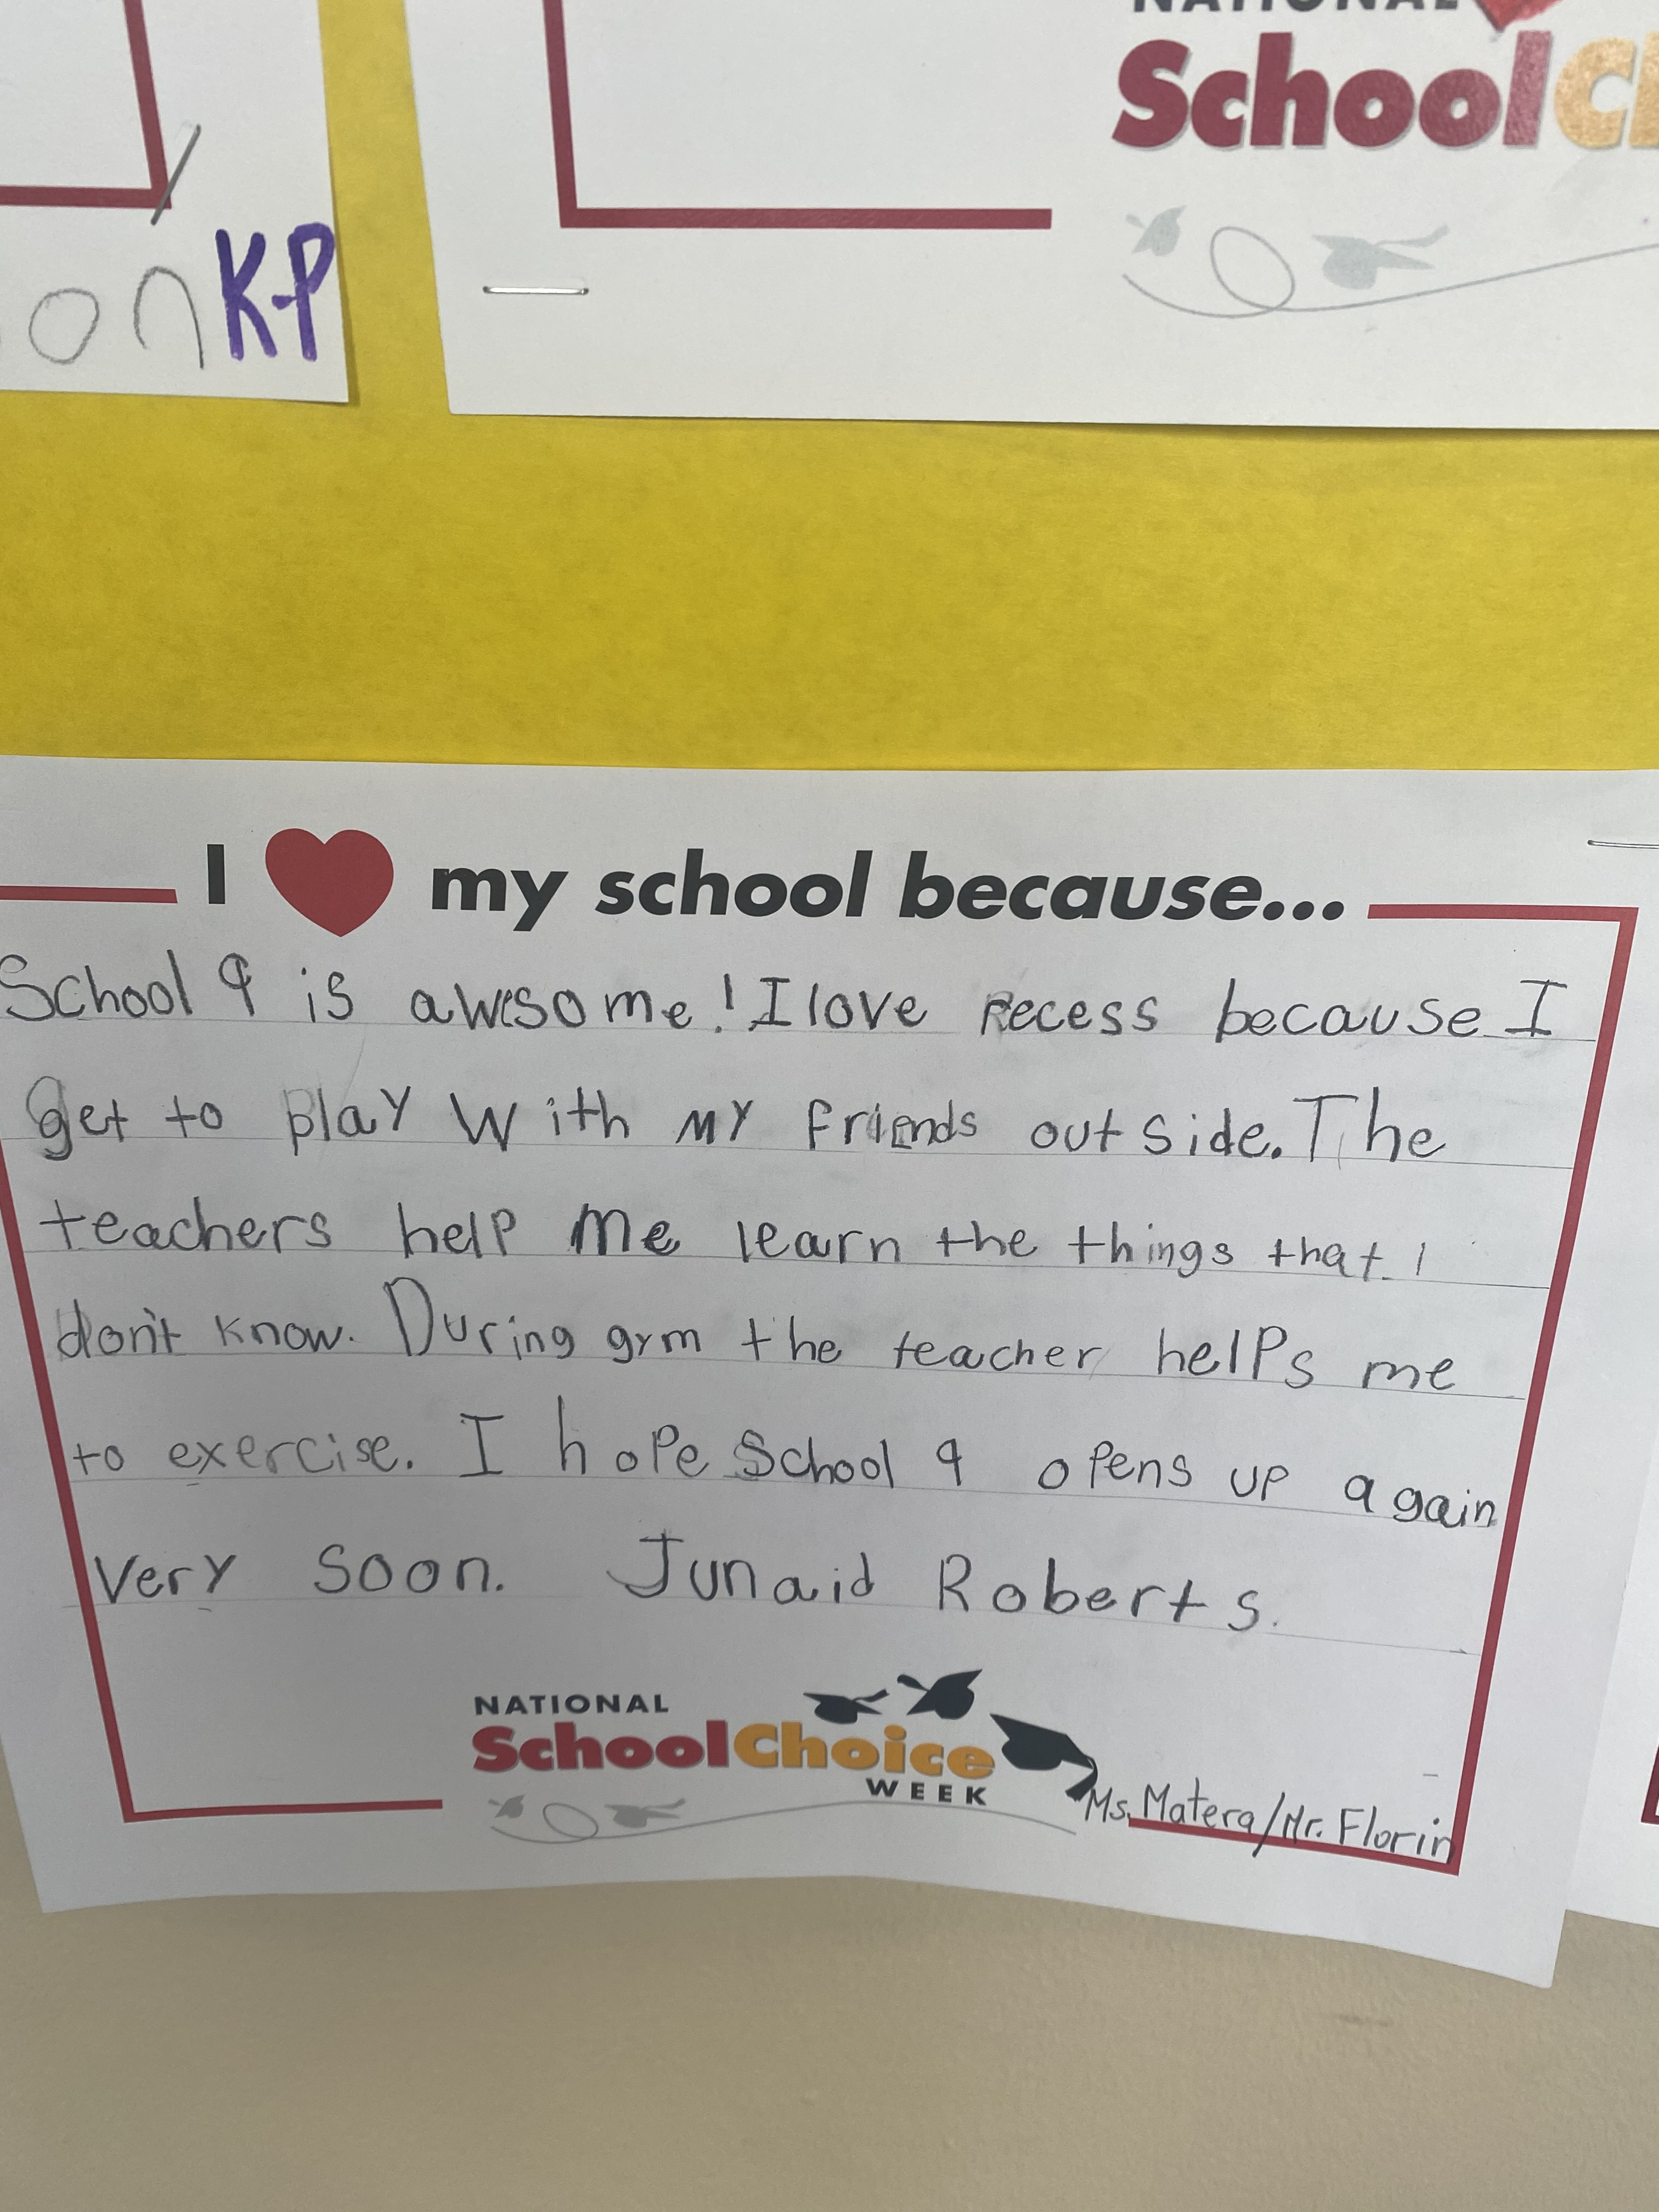 NATIONAL
School
on K-P
I ♥ my school because...
School 9 is awsome! I love recess because I
get to play with my friends outside. The
teachers help me learn the things that I
don't know. During gym the teacher helps me
to exercise. I hope School 9 opens up again
very soon. Junaid Roberts.
NATIONAL
SchoolChoice
WEEK
Ms. Matera/Mr. Florin